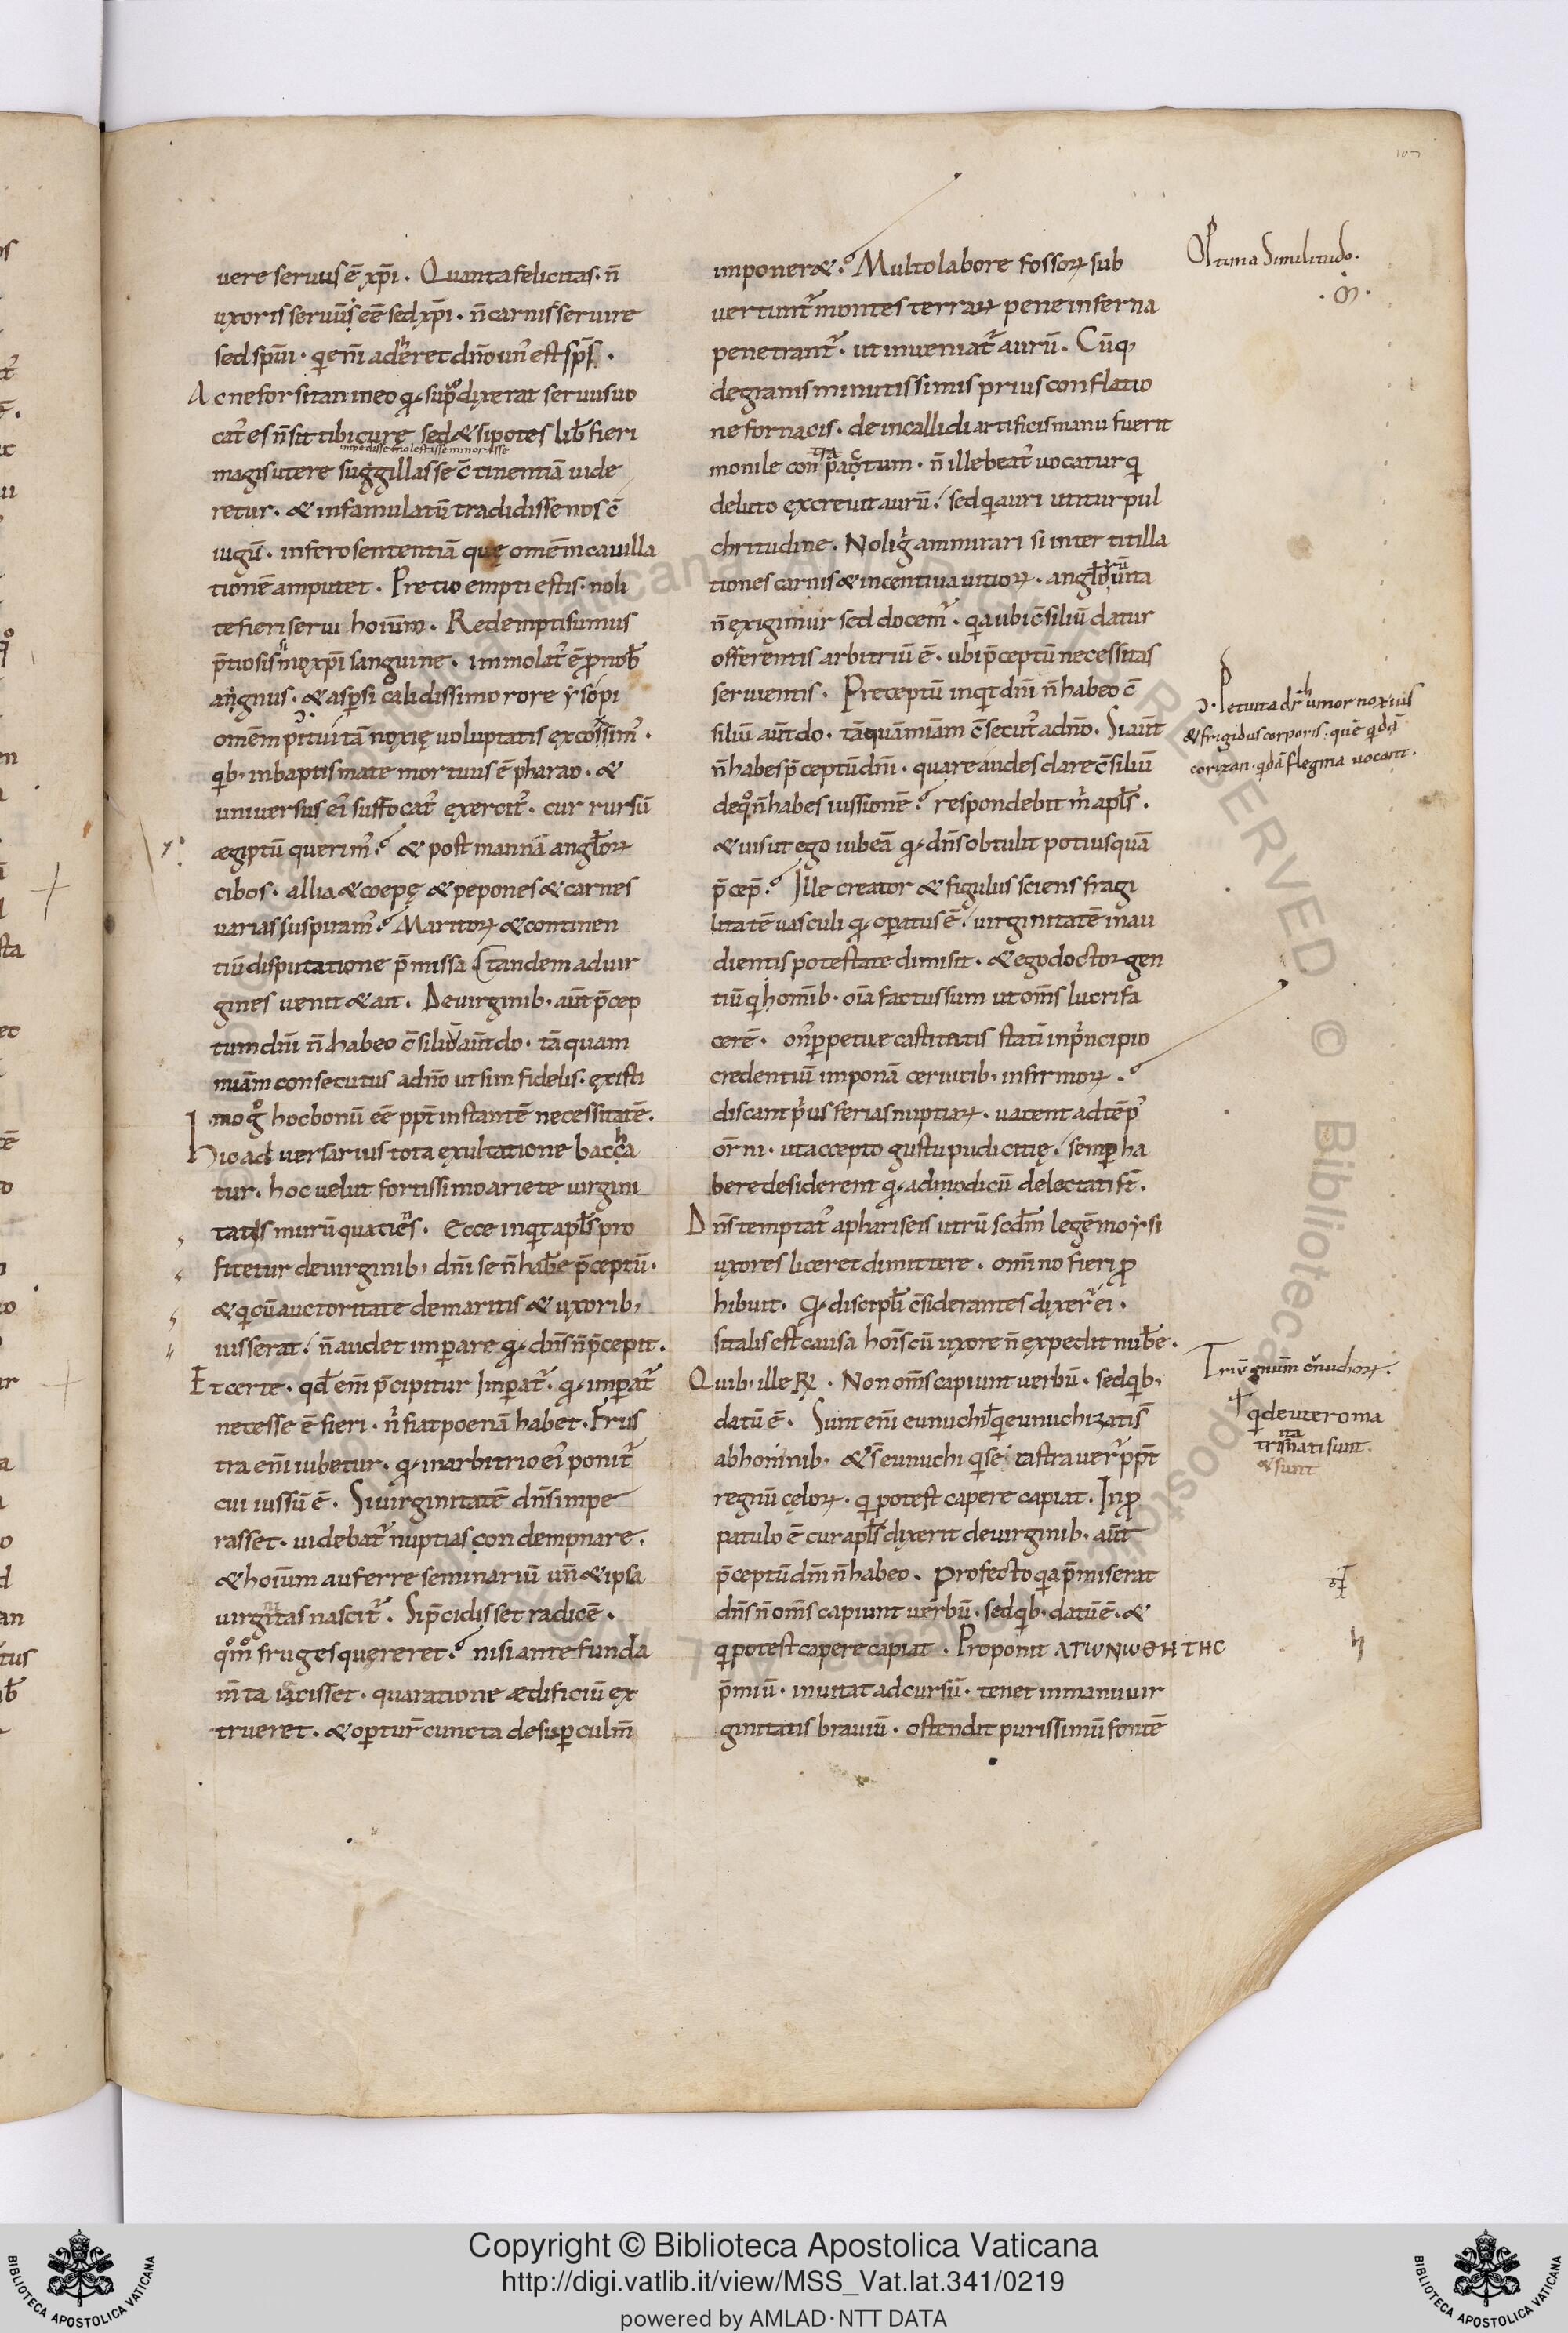 uere seruus ē xp̄i. Quanta felicitas. n̄
uxoris seruū eē sed xp̄i. n̄ carnis seruire
sed sp̄ui. qi eni adheret dn̄o un' est sp̄s.
Ac ne forsitan in eo qd supͦ dixerat seruus uo
cat' es n̄ sit tibi curę sed & si potes lib̄ fieri
impedisse molestasse minorasse
magis utere suggillasse c̄tinentiā uide
retur. & in famulatū tradidisse nos c̄
iugū. infero sententiā quę omēm cauilla
tionē amputet. Pretio empti estis. noli
te fieri serui hoium. Redempti sumus
p̄tiosissimo xp̄i sanguine. immolat' ē pro nob̄
agnus. & aspersi calidissimo rore ysopi
omēm pituitā noxię uoluptatis excoximꝰ.
qib, in baptismate mortuus ē pharao. &
uniuersus ei' suffocat' exercit'. cur rursū
ægiptū querimꝰ? & post mannā angl̄oꝝ
cibos. allia & coepę & pepones & carnes
uarias suspiramꝰ? Maritoꝝ & continen
tiū disputatione p̄missa tandem ad uir
gines uenit & ait. De uirginib, aūt p̄cep
tum dn̄i n̄ habeo c̄siliū aūt do. tā quam
miām consecutus a dn̄o ut sim fidelis. existi
mo gͦ hoc bonū eē ppt̄ instantē necessitatē.
Hic aduersarius tota exultatione baccha
tur. hoc uelut fortissimo ariete uirgini
tatis murū quatiens. Ecce inqt apl̄s pro
fitetur de uirginib, dn̄i se n̄ hab̄e p̄ceptū.
& qi cū auctoritate de maritis & uxorib,
iusserat n̄ audet imperare qd dn̄s n̄ p̄cepit.
Et certe. qd̄ em̄ p̄cipitur imperat'. qd imperat'
necesse ē fieri. n̄ fiat poenā habet. Frus
tra eni iubetur. qd in arbitrio ei' ponit'
cui iussū ē. Si uirginitatē dn̄s impe
rasset. uidebat' nuptias condempnare.
& hoium auferre seminariū un̄ & ipsa
uirginitas nascit'. Si p̄cidisset radicē.
qͦmͦ fruges quęreret? nisi ante funda
m̄ta iacisset. qua ratione ædificiū ex
trueret. & opertur cuncta desuper culm̄
imponeret? Multo labore fossoꝝ sub
uertunt' montes terraꝝ pene inferna
penetrant'. ut inueniat' aurū. Cūq,
de granis minutissimis prius conflatio
ne fornacis. dein callidi artificis manu fuerit
monile contractum. n̄ ille beat' uocatur qi
de luto excreuit aurū sed qi auri utitur pul
chritudine. Noli g' ammirari si inter titilla
tiones carnis & incentiua uitioꝝ. angl̄oꝝ uita
n̄ exigimur sed docemꝰ. qia ubi c̄siliū datur
offerentis arbitriū ē. ubi p̄ceptū necessitas
seruientis. Preceptū inqt dn̄i n̄ habeo c̄
siliū aūt do. tāquā miam c̄secut' a dn̄o. Si aūt
n̄ habes p̄ceptū dn̄i. quare audes dare c̄siliū
de qͦ n̄ habes iussionē? respondebit m' apl̄s.
& uis ut ego iubeā qd dn̄s obtulit potius quā
p̄cep̄? Ille creator & figulus sciens fragi
litatē uasculi qd operatus ē uirginitatē in au
dientis potestate dimisit. & ego doctor gen
tiū qi homib, oīa factus sum ut om̄s lucrifa
cerē. on' perpetue castitatis statī in p'ncipio
credentiū imponā ceruicib, infirmoꝝ?
discant p'us ferias nuptiaꝝ. uacent ad tēp'
or̄ni. ut accepto gustu pudicitię semper ha
bere desiderent qd ad modicū delectati st̄.
Dn̄s temptat' a phariseis utrū scd̄m legē moysi
uxores liceret dimittere. omnino fieri pro
hibuit. Qd discipl̄i c̄siderantes dixer' ei.
si talis est causa hoīs cū uxore n̄ expedit nub̄e.
Quib, ille R̄. Non om̄s capiunt uerbū. sed qib,
datū ē. Sunt eni eunuchi qi eunuchizati s̄
ab hominib, & s̄ eunuchi qi se castrauer' ppt̄
regnū cęloꝝ. qi potest capere capiat. In pro
patulo ē cur apl̄s dixerit de uirginib, aūt
p̄ceptū dn̄i n̄ habeo. Profecto qia p̄miserat
dn̄s n̄ om̄s capiunt uerbū. sed qib, datū ē. &
qi potest capere capiat. Proponit ΑΓΩΝΩΘΗΤΗС
p̄miū. inuitat ad cursū. tenet in manu uir
ginitatis brauiū. ostendit purissimū fontē
Optima Similitudo.
Petuita dr̄ humor noxius
& frigidus corporis. quē qidā
corizan. qidā flegma uocant.
Triū gnūm eunuchoꝝ.
qi de utero ma
tris ita nati sunt.
& sunt
Copyright © Biblioteca Apostolica Vaticana
http://digi.vatlib.it/view/MSS_Vat.lat.341/0219
powered by AMLAD·NTT DATA
BIBLIOTECA APOSTOLICA VATICANA
BIBLIOTECA APOSTOLICA VATICANA